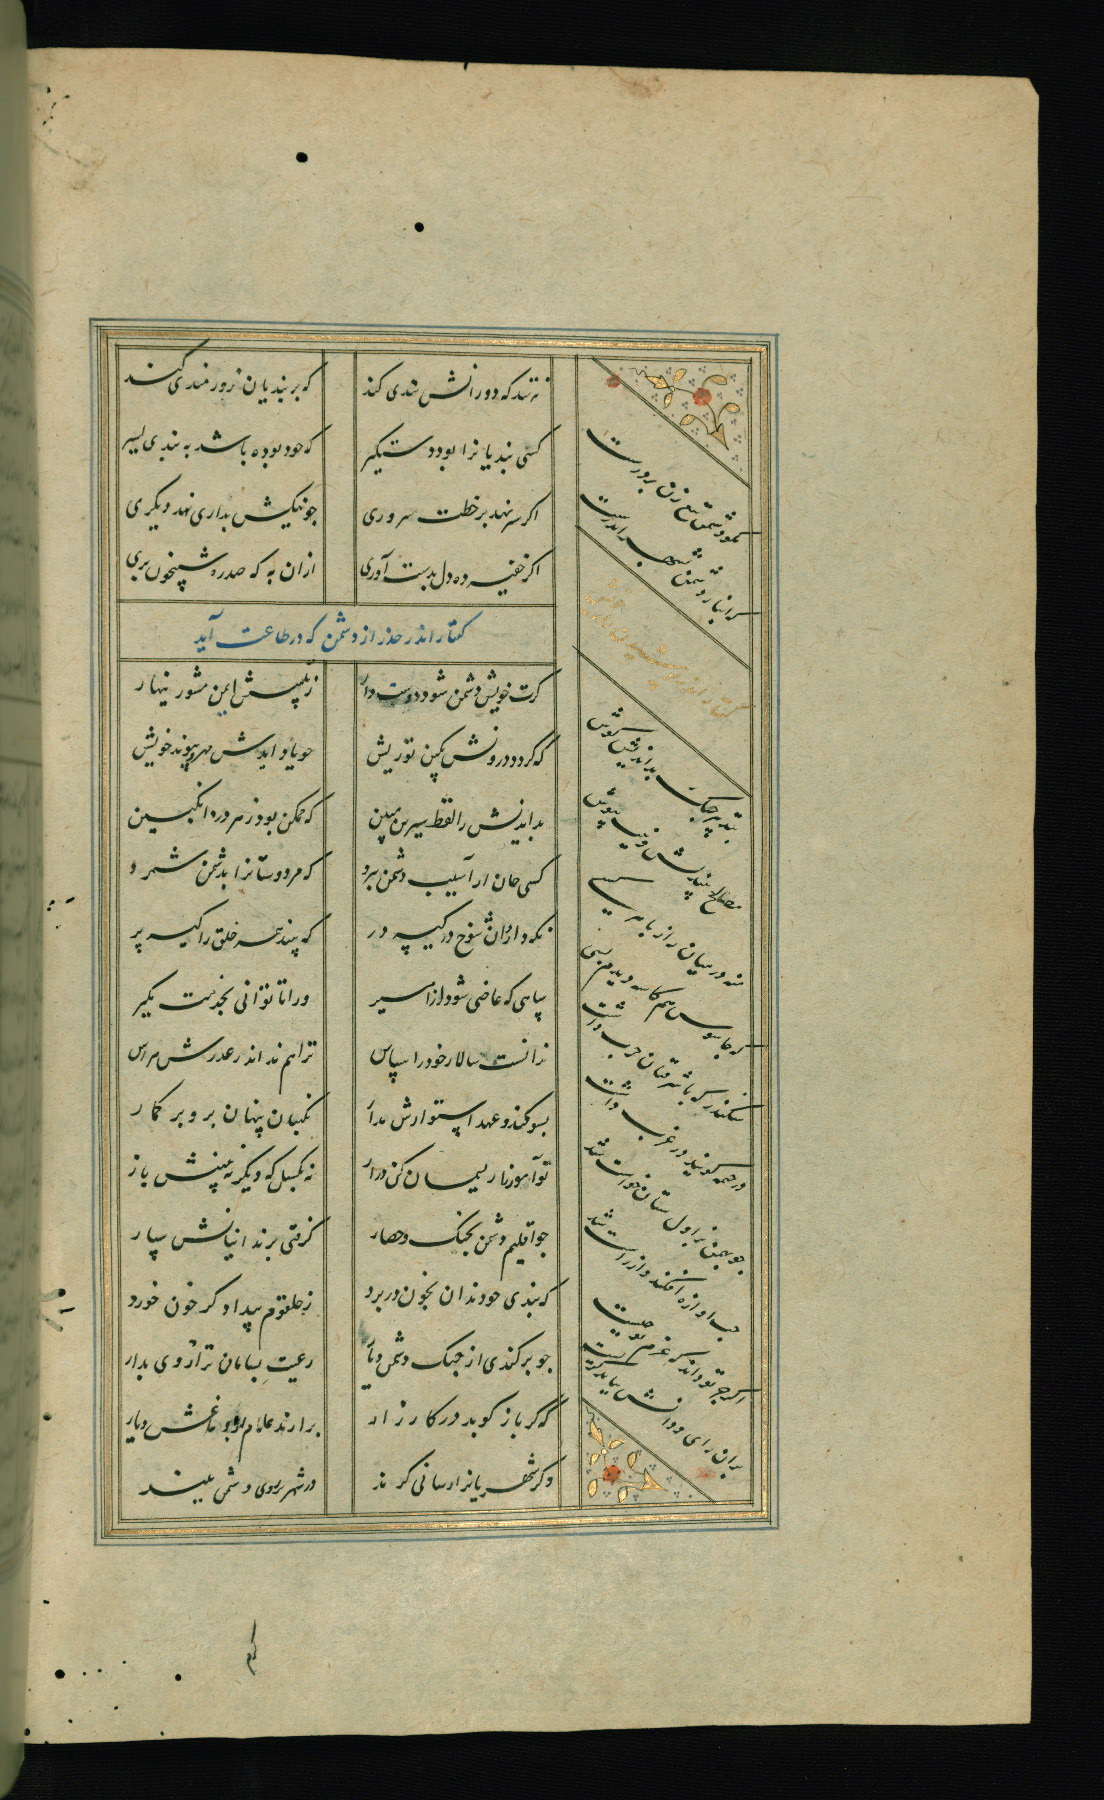 نه تند که دورانش تندی کند که بر بندیان زورمندی کند
کسی بندیانرا بود دستکیر که خود بوده باشد به بندی اسیر
اکر سر نهد بر خطت سروری جو نیکش بداری نهد دیکری
اکر خفیه ده دل بدست آوری ازان به که صد ره شبیخون بری
کفتار اندر حذر از دشمن که در طاعت آید
کرت خویش دشمن شود دوستدار ز تلبیسش ایمن مشو زینهار
که کردد درونش بکین تو ریش جو یاد آیدش مهر و پیوند خویش
بداندیش را لفظ شیرین مبین که ممکن بود زهر در انکبین
کسی جان از آسیب دشمن ببرد که مر دوستانرا بدشمن شمرد
نکه دارد آن شوخ در کیسه در که بیند همه خلق را کیسه بر
سپاهی که عاصی شود از امیر ورا تا توانی بخدمت مکیر
ندانست سالار خود را سپاس ترا هم نداند ز عذرش هراس
بسوکند و عهد استوارش مدار نکهبان پنهان برو بر کمار
نوآموز را ریسمان کن دراز نه بکسل که دیکر نه بینیش باز
جو اقلیم دشمن بجنک و حصار کرفتی بزندانیانش سپار
که بندی جو دندان بخون در برد ز حلقوم بیدادکر خون خورد
جو برکندی از جنک دشمن دیار رعیت بسامان تر از وی بدار
که کر باز کوبد در کارزار برارند عام از دماغش دمار
وکر شهریانرا رسانی کزند در شهر بروی دشمن مبند
مکو دشمن تیغ زن بر درست که انباز دشمن بشهر اندرست
بتدبیر جنک بداندیش کوش مصالح بیندیش و نیت بپوش
منه در میان راز با هر کسی که جاسوس هم کاسه دیدم بسی
سکندر که با شرقیان حرب داشت در خیمه کویند در غرب داشت
جو بهمن بزاولستان خواست شد جب آوازه افکند و از راست شد
اکر جز تو داند که عزم تو جیست بران رای و دانش بباید کریست